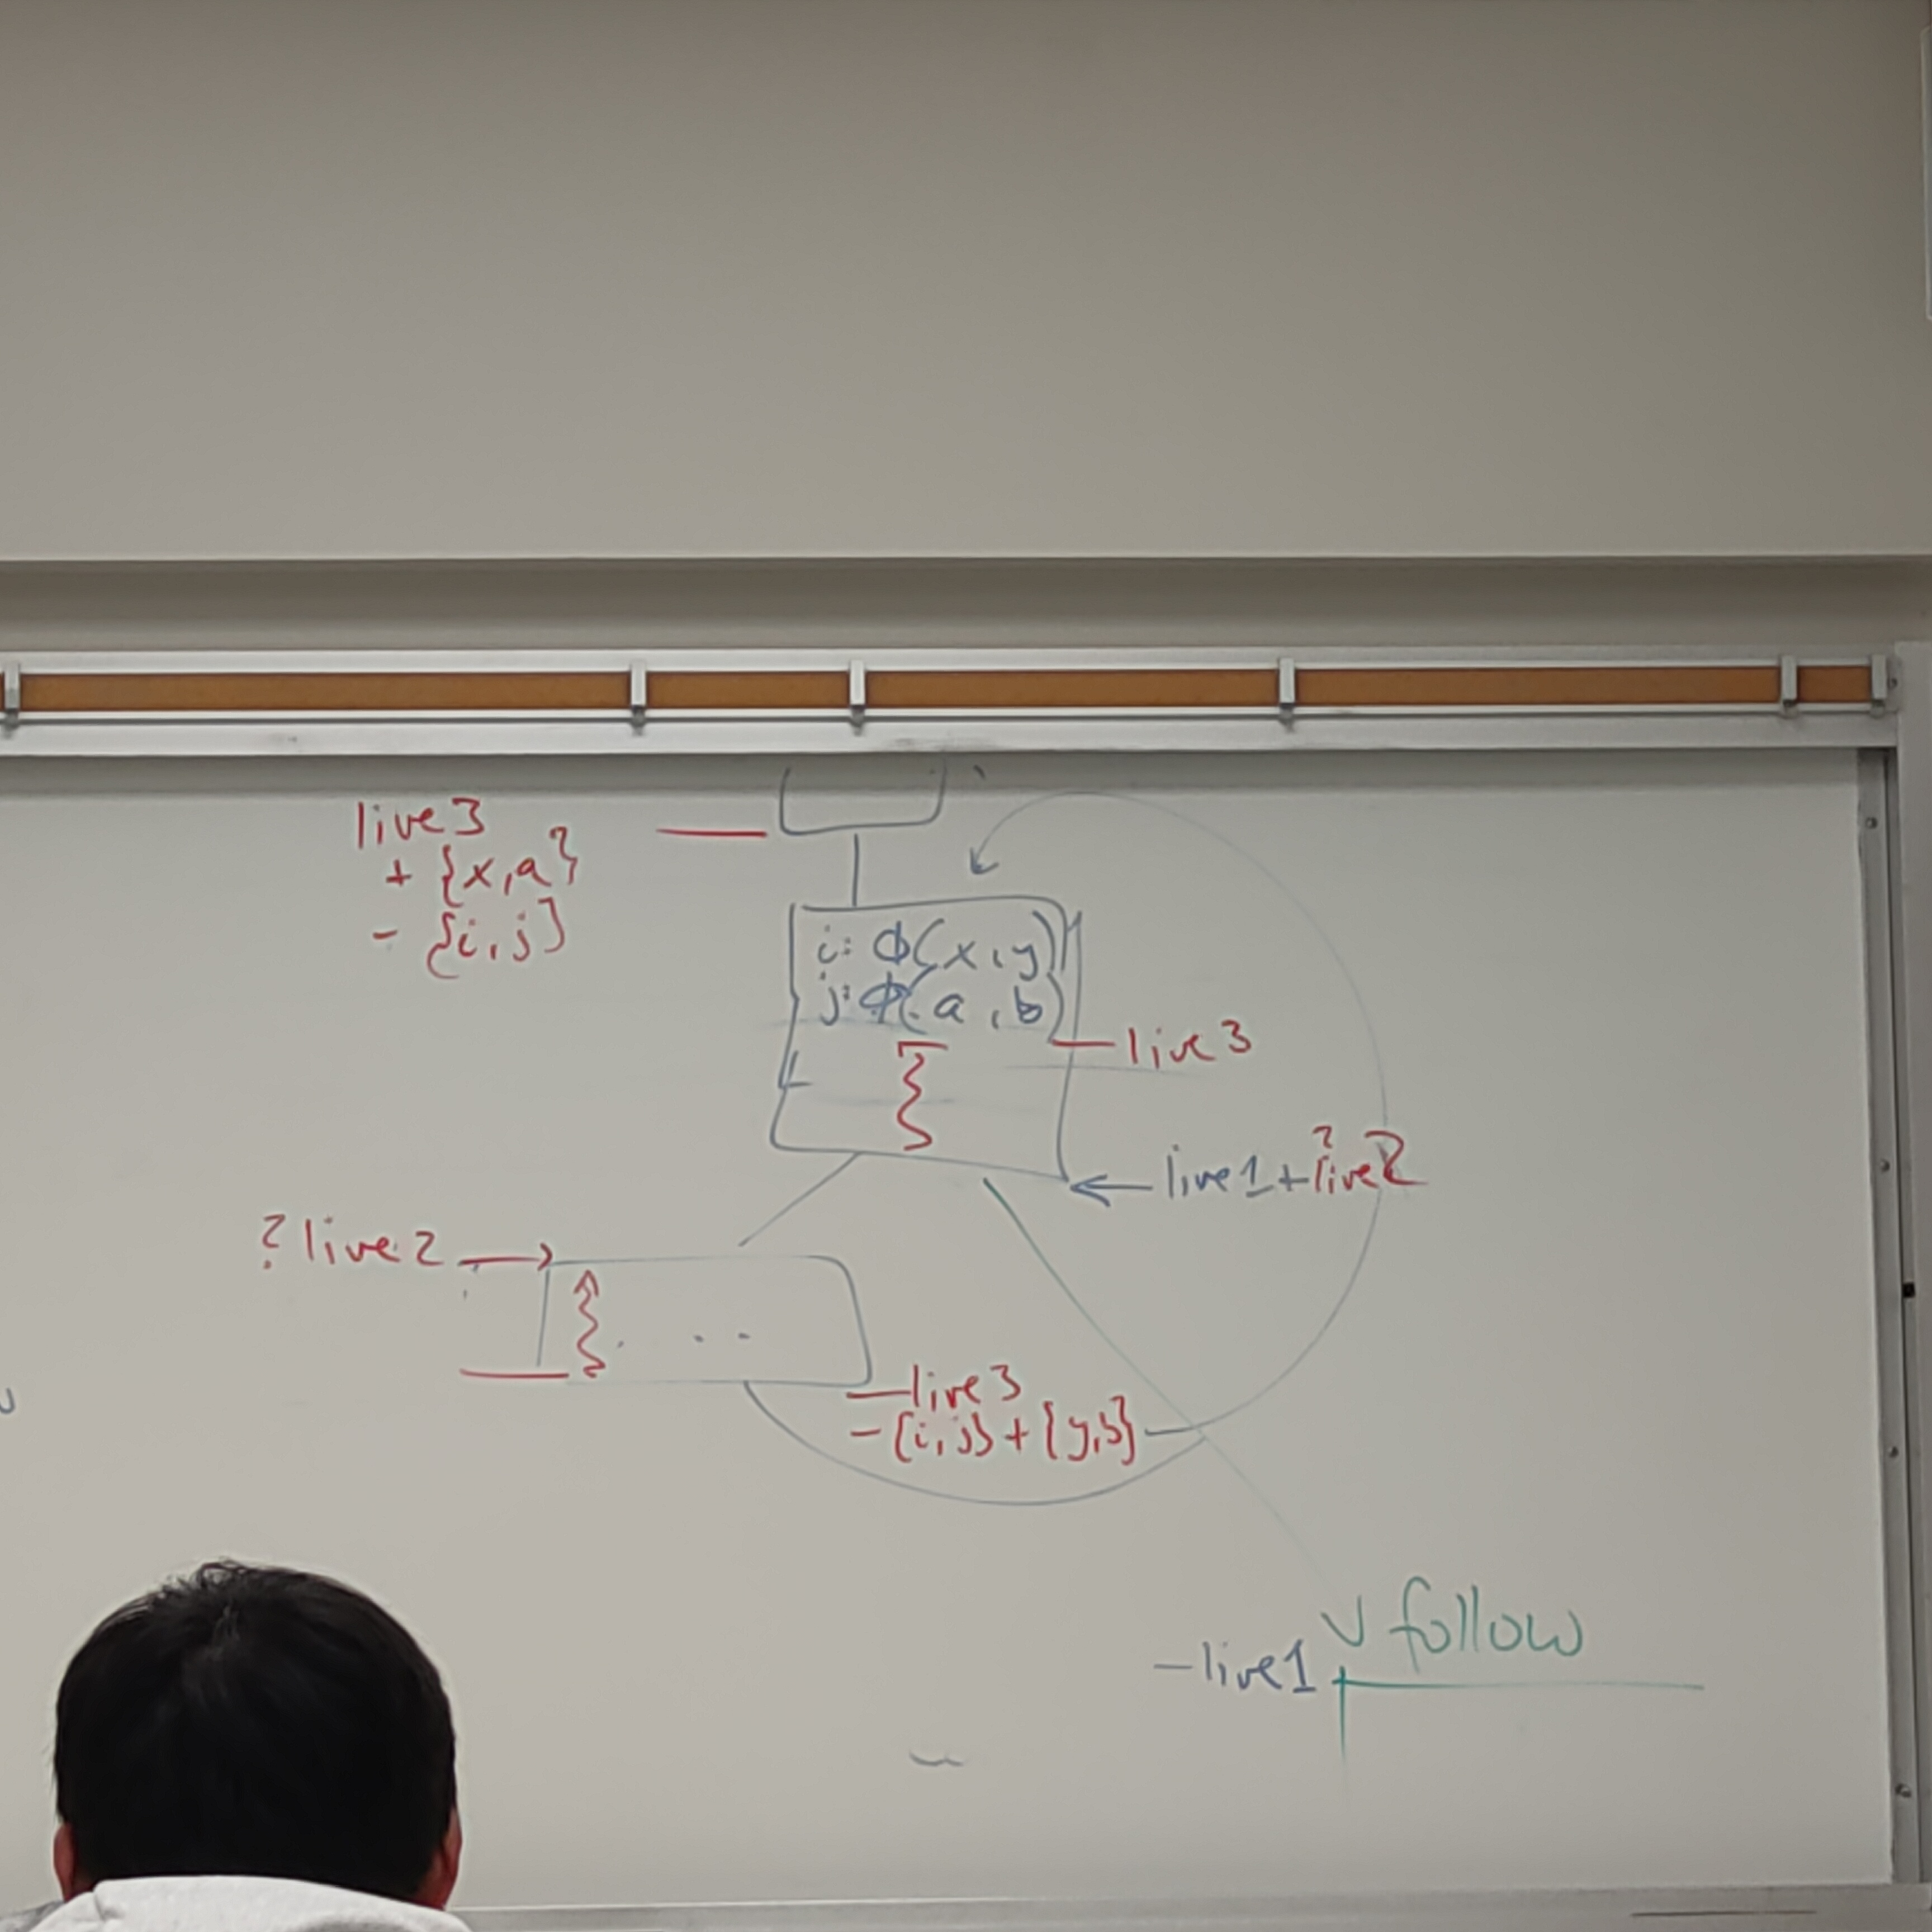 live3
+ {x,a}
- {i,j}
i: Φ(x,y)
j: Φ(a,b)
live3
live1+live2
?
? live2
. . .
live3
-{i,j}+{y,b}
follow
live1